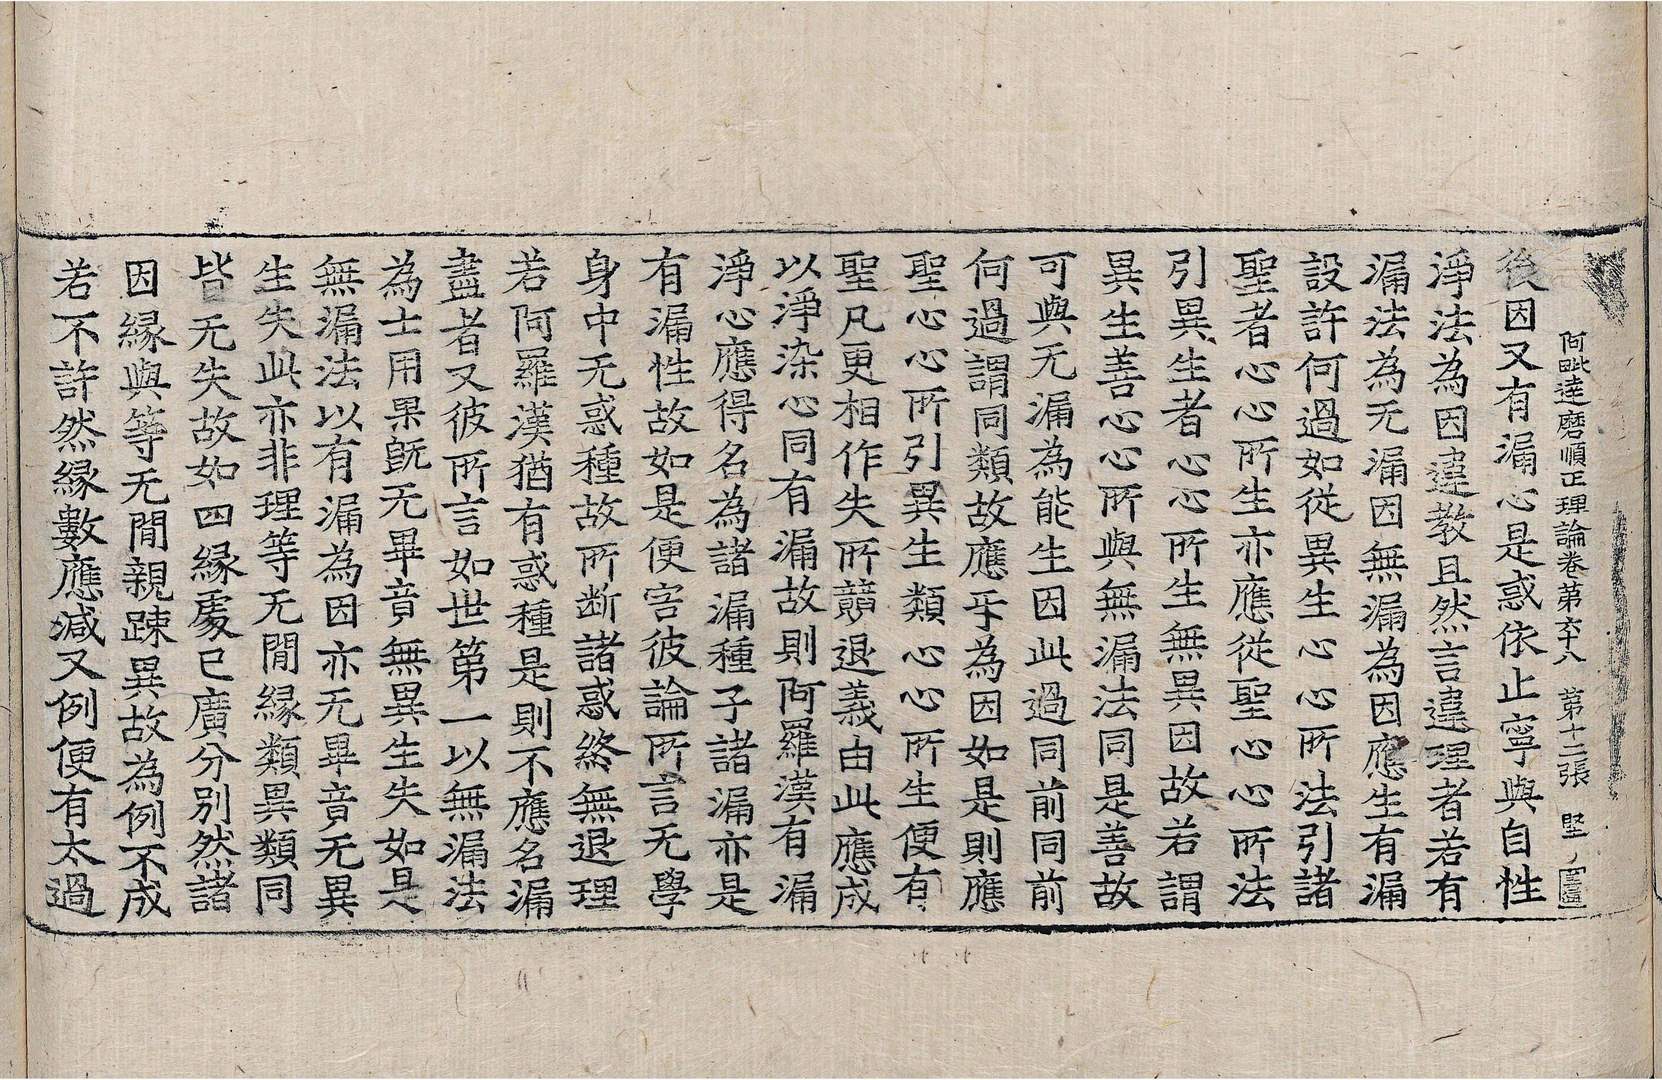 阿毗逹磨順正理論卷第六十八 第十二張 堅
後因又有漏心是惑依止寧與自性
淨法為因違教且然言違理者若有
漏法為无漏因無漏為因應生有漏
設許何過如從異生心心所法引諸
聖者心心所生亦應從聖心心所法
引異生者心心所生無異因故若謂
異生善心心所與無漏法同是善故
可與无漏為能生因此過同前同前
何過謂同類故應㸦為因如是則應
聖心心所引異生類心心所生便有
聖凡更相作失所競退義由此應成
以淨染心同有漏故則阿羅漢有漏
淨心應得名為諸漏種子諸漏亦是
有漏性故如是便害彼論所言无學
身中无惑種故所断諸惑終無退理
若阿羅漢猶有惑種是則不應名漏
盡者又彼所言如世第一以無漏法
為士用果旣无畢竟無異生失如是
無漏法以有漏為因亦无畢竟无異
生失此亦非理等无閒緣類異類同
皆无失故如四緣處已廣分別然諸
因緣與等无閒親踈異故為例不成
若不許然緣數應減又例便有太過